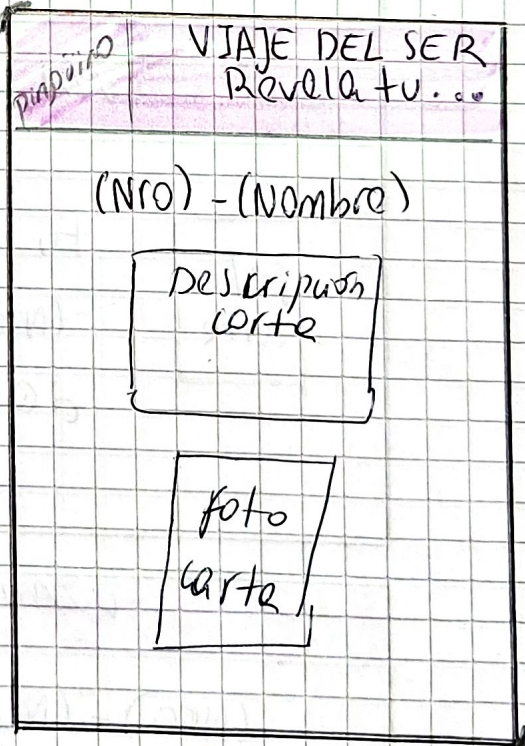 VIAJE DEL SER
Revela tu...
(Nro) - (Nombre)
Descripción
corta
foto
carta